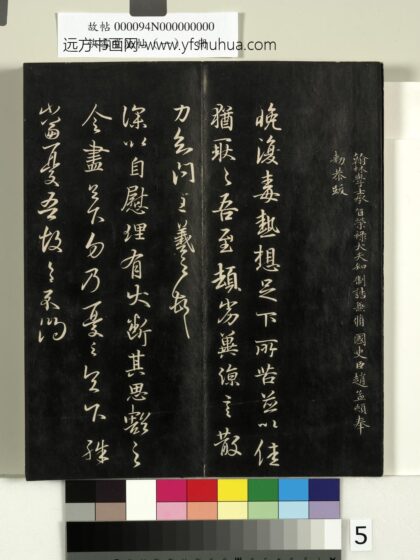 故帖 000094N000000000
远方书画网-www.yfshuhua.com
翰林學士承旨榮祿大夫知制誥兼脩國史臣趙孟頫奉
勑恭跋
晚復毒熱想足下所苦並以佳
猶耿耿吾至頓劣冀涼言散
力知問王羲之報
深以自慰理有大斷其思豁之
令盡足下勿乃憂之足下殊
當憂吾故具示問
5